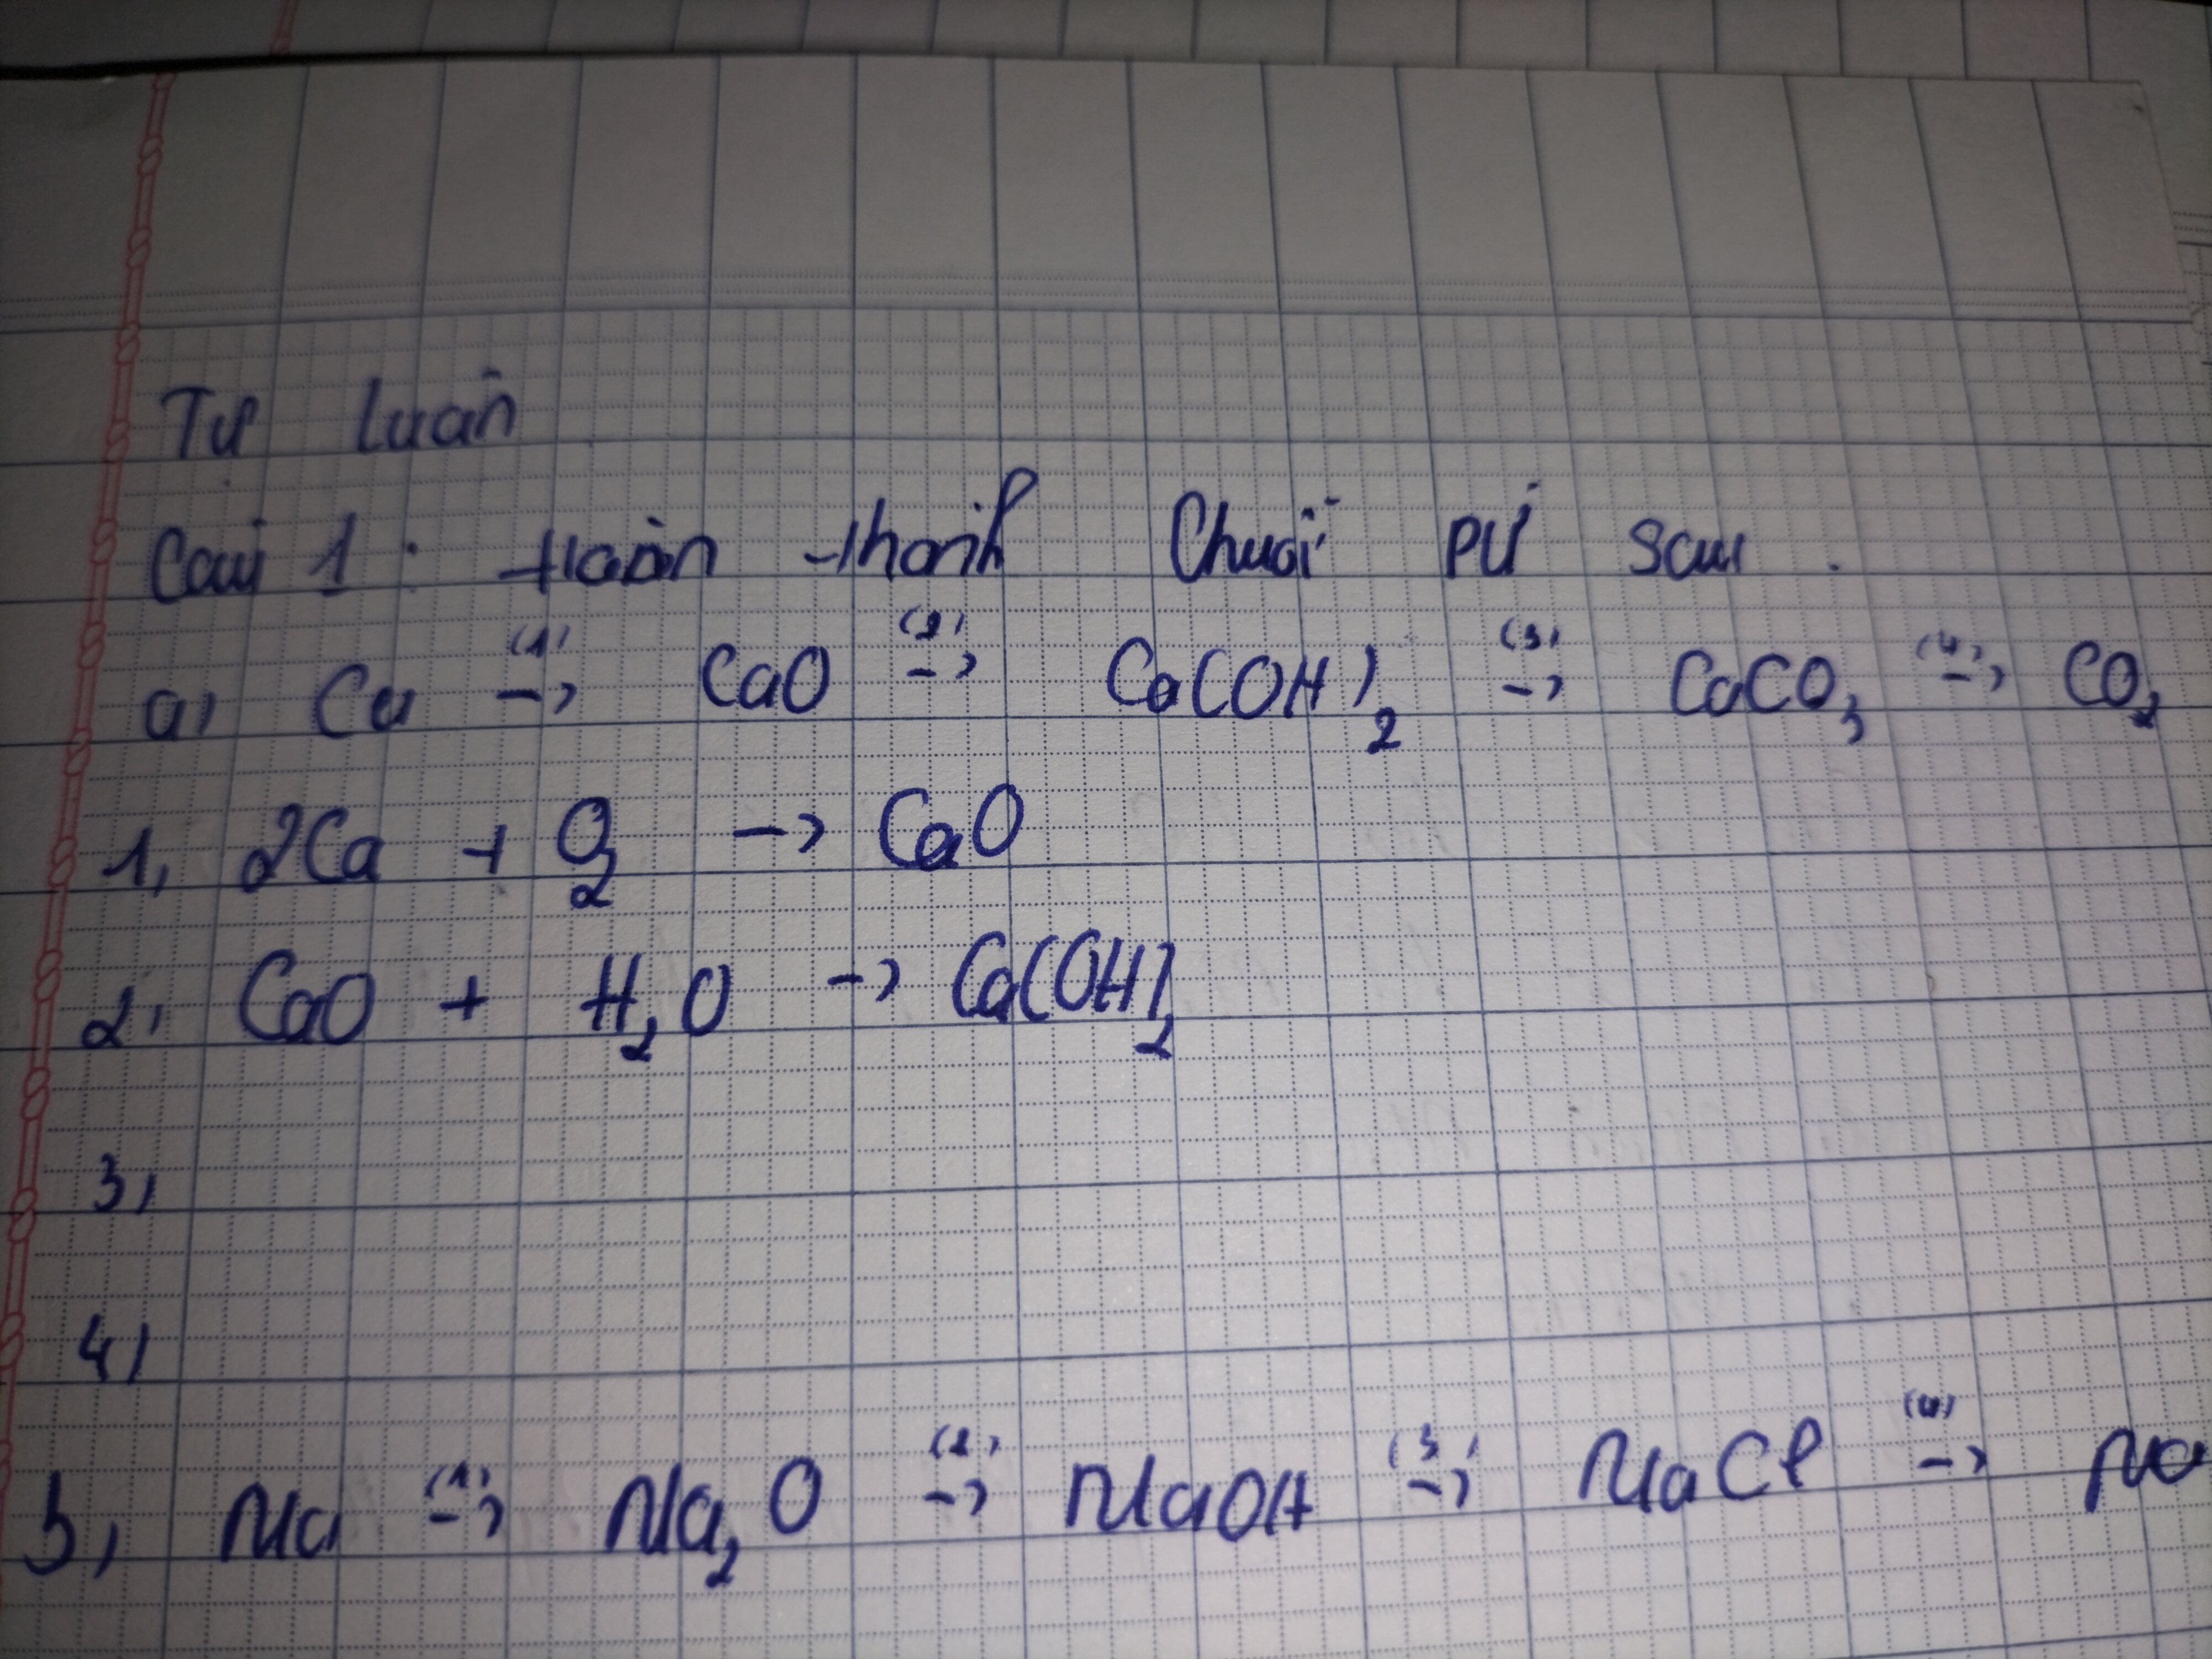 Tự luận
Câu 1: Hoàn thành Chuỗi PƯ sau.
a, Ca (1)-> CaO (2)-> Ca(OH)₂ (3)-> CaCO₃ (4)-> CO₂
1, 2Ca + O₂ -> CaO
2, CaO + H₂O -> Ca(OH)₂
3,
4,
b, Na (1)-> Na₂O (2)-> NaOH (3)-> NaCl (4)-> Na